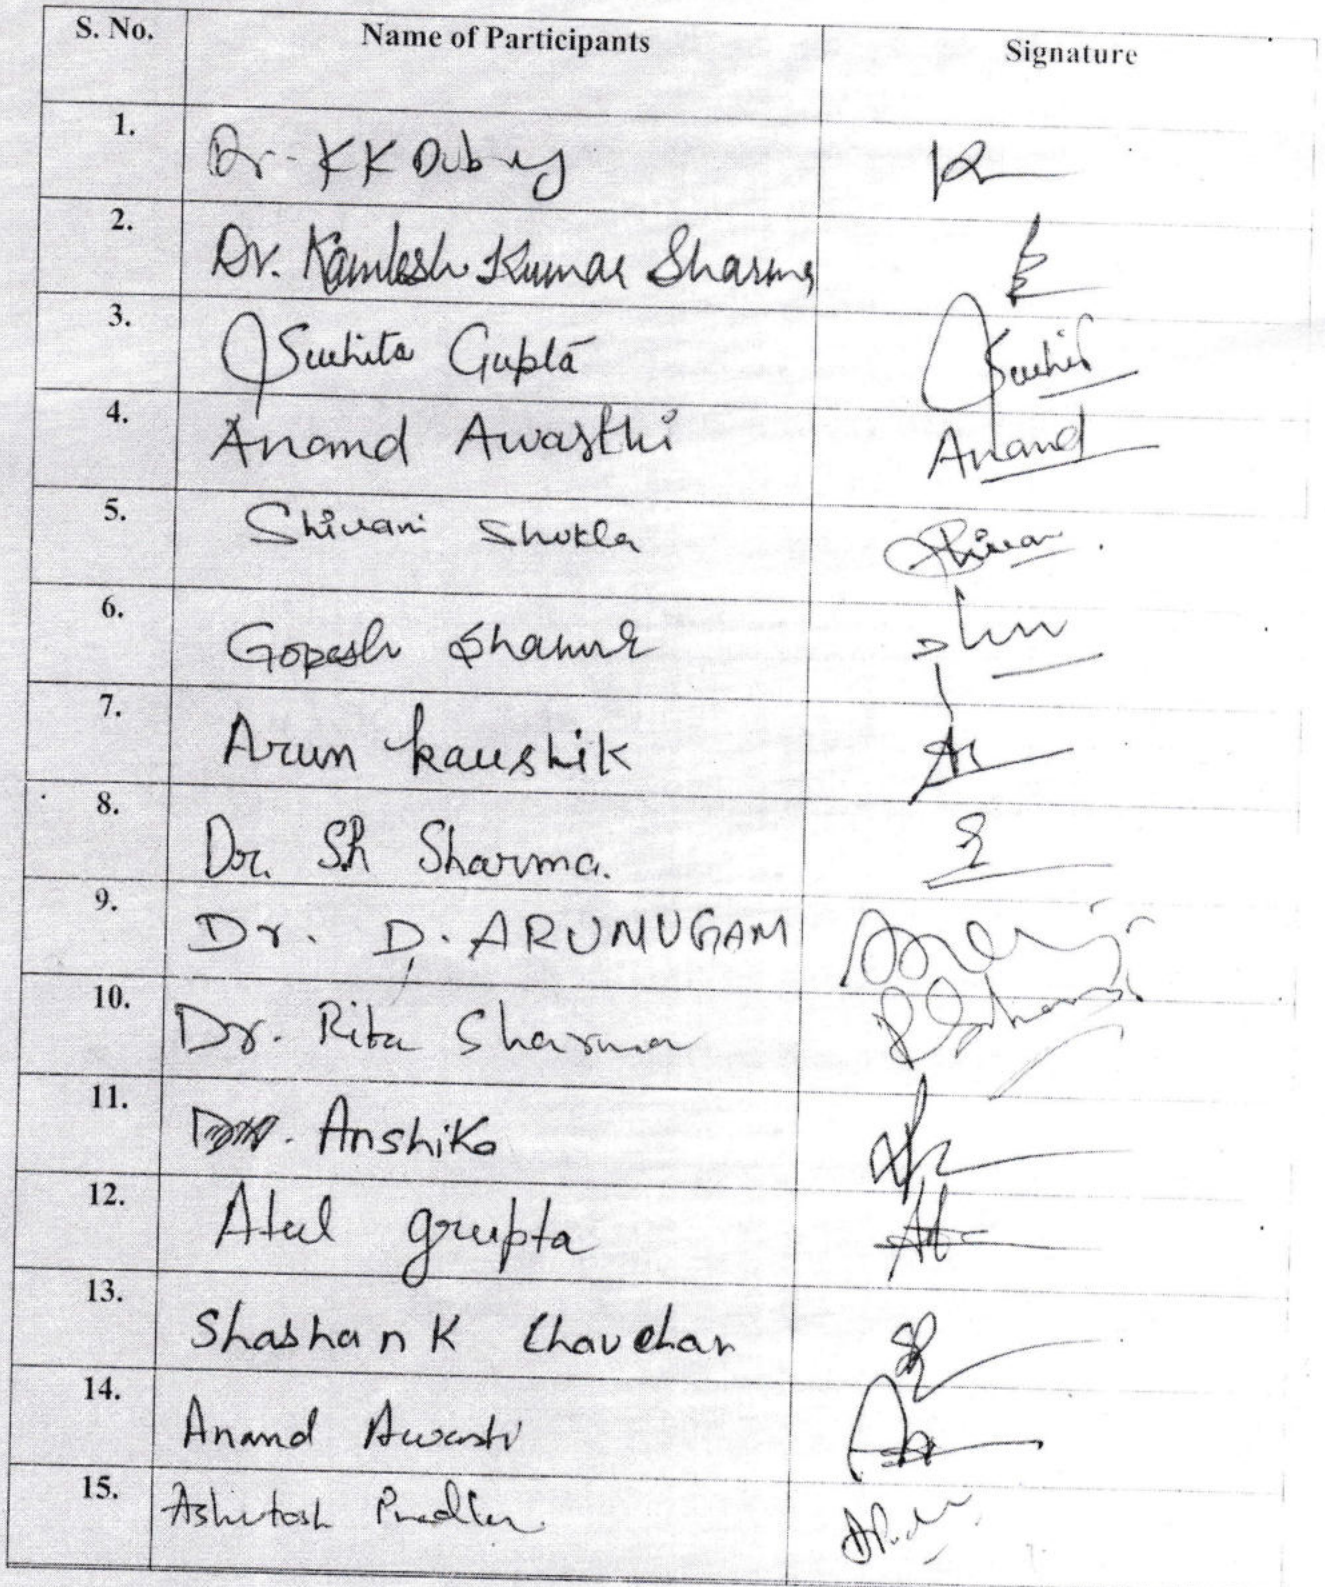 S. No. Name of Participants Signature
1. Dr. KK Dubey
2. Dr. Kamlesh Kumar Sharma
3. Suchita Gupta Suchit
4. Anand Awasthi Anand
5. Shivani Shukla Shivan
6. Gopesh Sharma
7. Arun kaushik
8. Dr. SK Sharma.
9. Dr. D. ARUMUGAM
10. Dr. Rita Sharma RSharma
11. Anshika
12. Atul grupta
13. Shashank Chauchan
14. Anand Awasti
15. Ashutosh